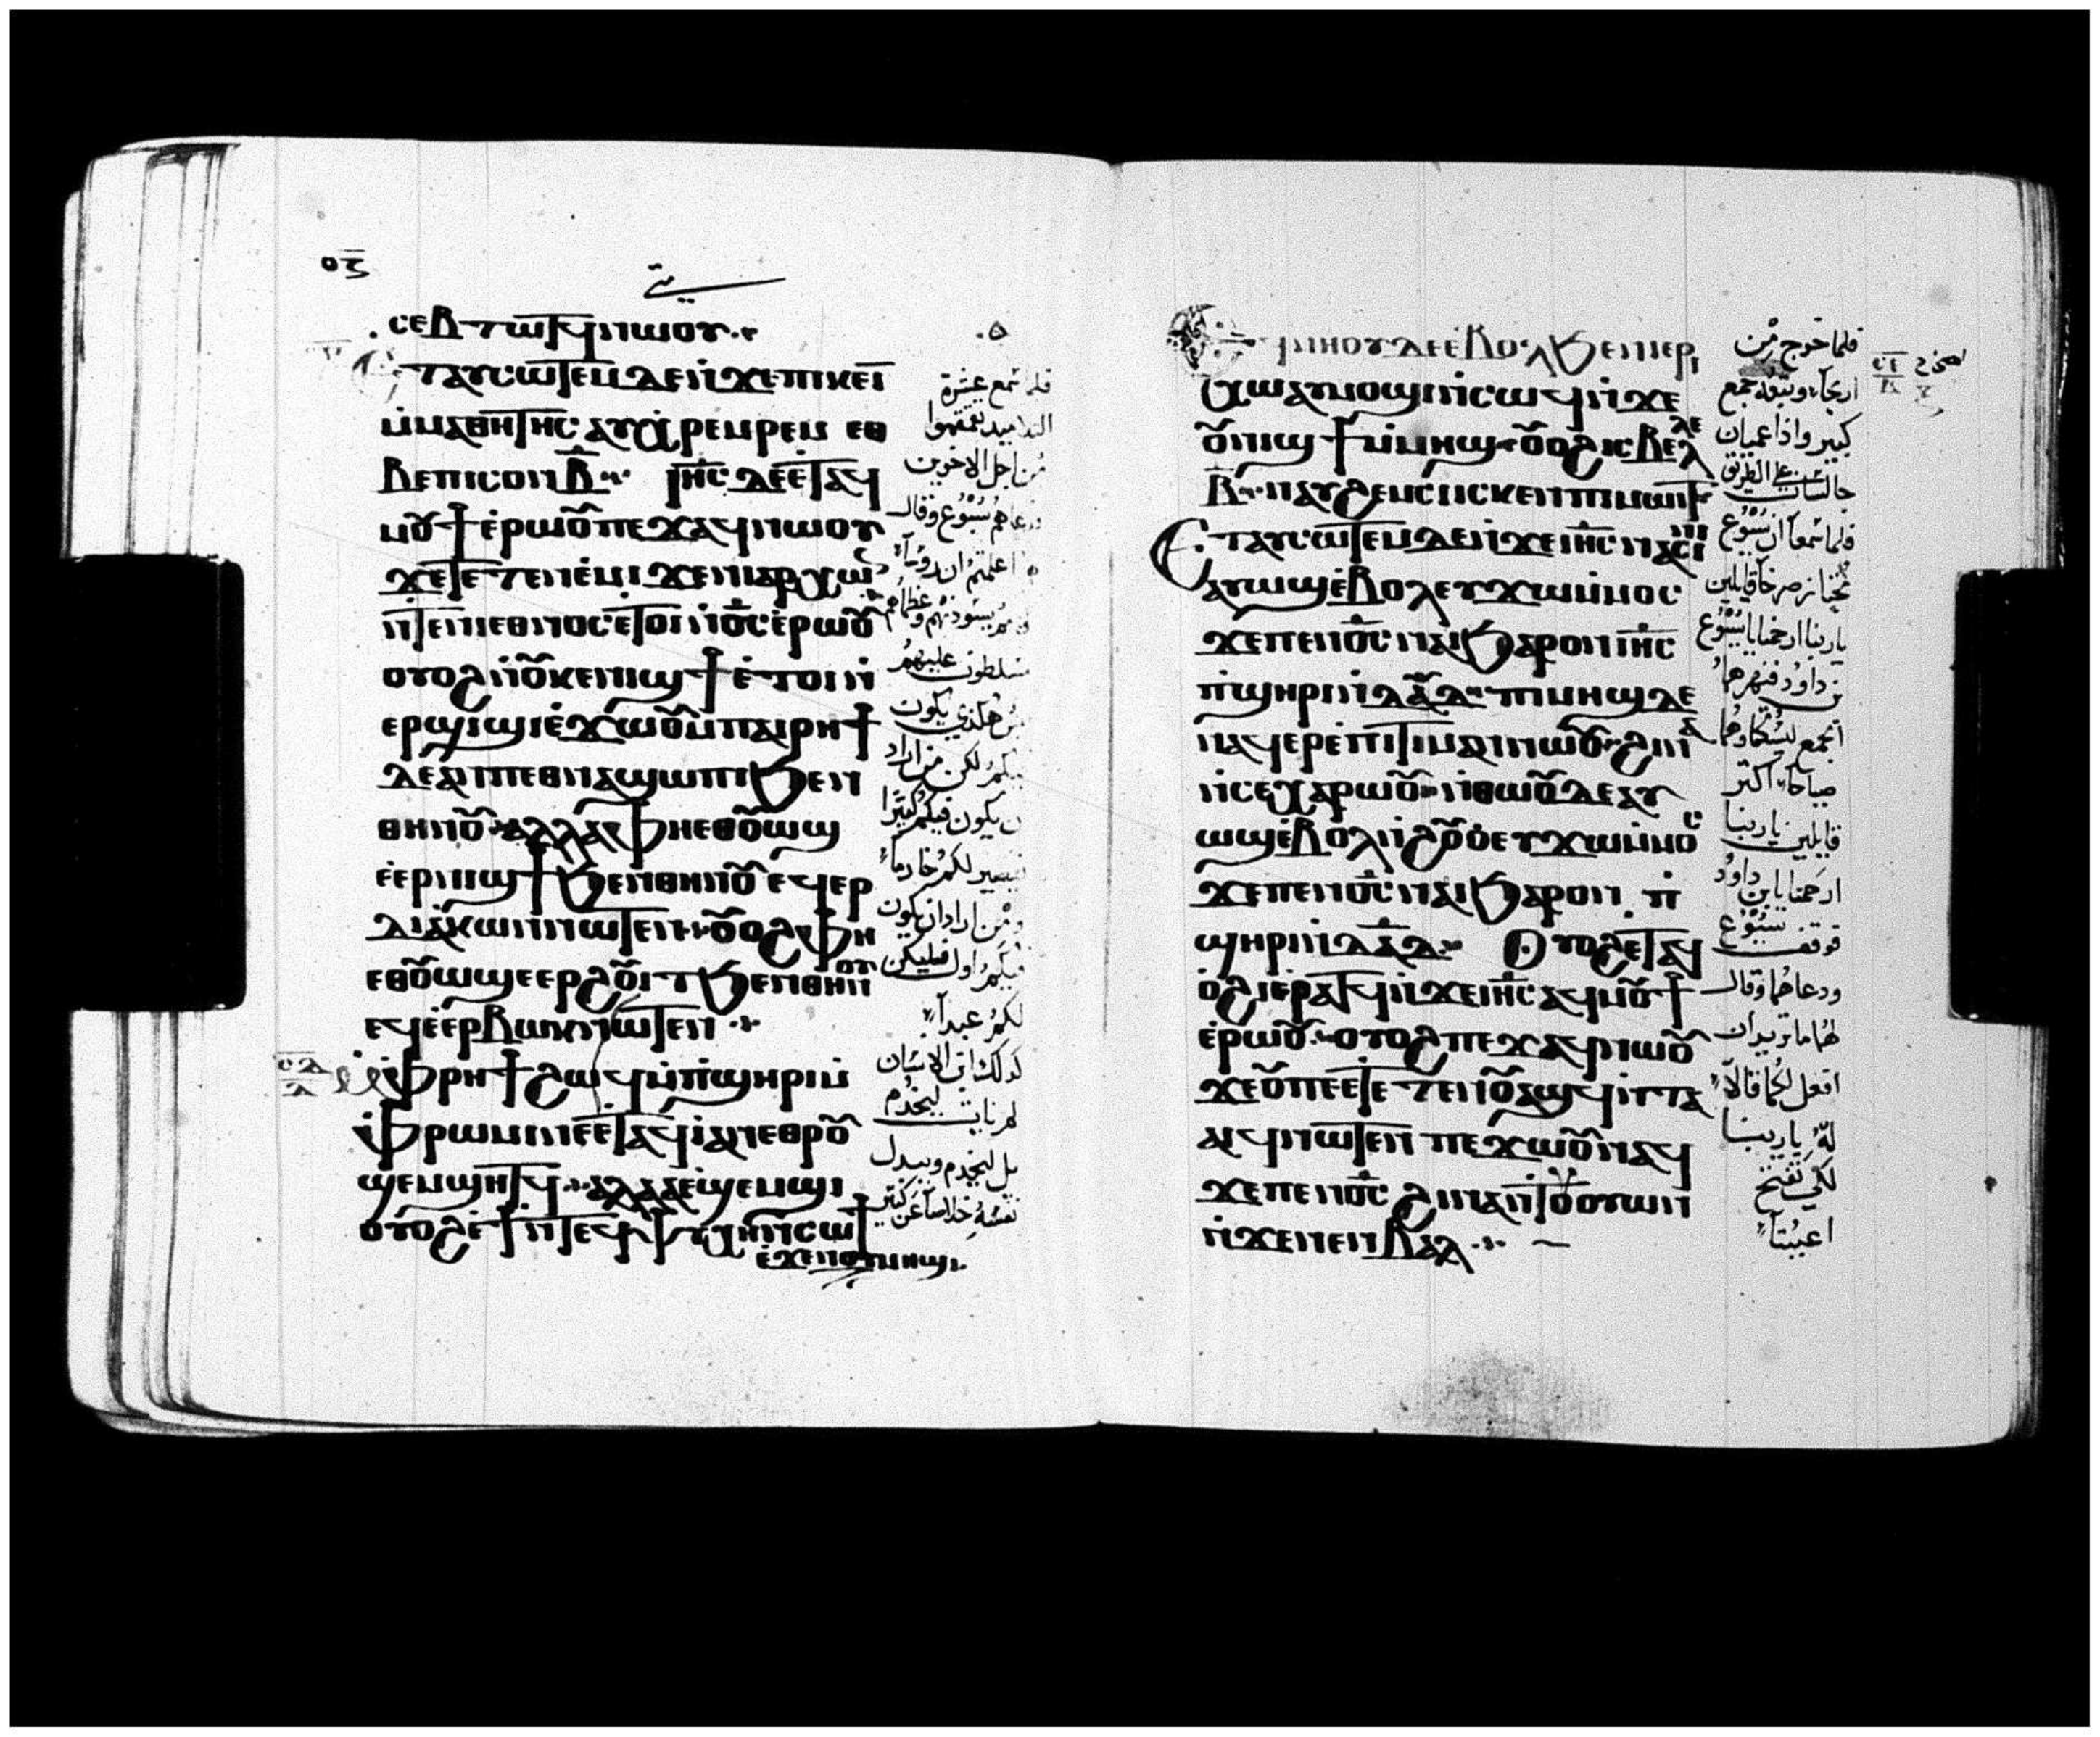 ⲟⲍ
ⲥⲉⲃⲧⲱⲧϥ ⲛⲱⲟⲩ
ⲉⲧⲁⲩⲥⲱⲧⲉⲙ ⲇⲉ ⲛϫⲉ ⲡⲓⲕⲉⲓ
ⲙⲙⲁⲑⲏⲧⲏⲥ ⲁⲩⲭⲣⲉⲙⲣⲉⲙ ⲉⲑ
ⲃⲉ ⲡⲓⲥⲟⲛ ⲃ ⲓⲏⲥ ⲇⲉ ⲉⲧⲁϥ
ⲙⲟⲩϯ ⲉⲣⲱⲟⲩ ⲡⲉϫⲁϥ ⲛⲱⲟⲩ
ϫⲉ ⲧⲉⲧⲉⲛⲉⲙⲓ ϫⲉ ⲛⲓⲁⲣⲭⲱⲛ
ⲛⲧⲉ ⲛⲓⲉⲑⲛⲟⲥ ⲉⲧⲟⲓ ⲛⲟⲥ ⲉⲣⲱⲟⲩ
ⲟⲩⲟϩ ⲛⲟⲩⲕⲉⲛⲓϣϯ ⲉⲧⲟⲓ ⲛ
ⲉⲣϣⲓϣⲓ ⲉϫⲱⲟⲩ ⲙⲡⲁⲓⲣⲏϯ
ⲇⲉ ⲁⲛ ⲡⲉⲑⲛⲁϣⲱⲡⲓ ϧⲉⲛ
ⲑⲏⲛⲟⲩ ⲁⲗⲗⲁ ⲫⲏ ⲉⲑⲟⲩⲱϣ
ⲉⲉⲣⲛⲓϣϯ ϧⲉⲛ ⲑⲏⲛⲟⲩ ⲉϥⲉⲣ
ⲇⲓⲁⲕⲱⲛ ⲛⲱⲧⲉⲛ ⲟⲩⲟϩ ⲫⲏ
ⲉⲑⲟⲩⲱϣ ⲉⲉⲣϩⲟⲩⲓⲧ ϧⲉⲛ ⲑⲏⲛⲟⲩ
ⲉϥⲉⲉⲣⲃⲱⲕ ⲛⲱⲧⲉⲛ
ⲙⲫⲣⲏϯ ϩⲱϥ ⲙⲡϣⲏⲣⲓ ⲙ
ⲫⲣⲱⲙⲓ ⲛⲉⲧⲁϥⲓ ⲁⲛ ⲉⲑⲣⲟⲩ
ϣⲉⲙϣⲏⲧϥ ⲁⲗⲗⲁ ⲉϣⲉⲙϣⲓ
ⲟⲩⲟϩ ⲉϯ ⲛⲧⲉϥⲯⲩⲭⲏ ⲛⲥⲱϯ
ⲉϫⲉⲛ ⲟⲩⲙⲏϣ
فلما سمع عشرة
التلاميذ تقمقموا
من اجل الاخوين
ودعاهم يسوع وقال
اعلمتم ان روساء
مسلطون عليهم
ليس هكذي يكون
فيكم لكن من اراد
ان يكون فيكم كبيرًا
فيصير لكم خادما
ومن اراد ان يكون
فيكم اول فليكن
لكم عبدا
كذلك ابن الانسان
لم يات ليخدم
بل ليخدم ويبدل
نفسه خلاصا عن كثير
ⲉϥⲛⲏⲟⲩ ⲇⲉ ⲉⲃⲟⲗ ϧⲉⲛ ⲓⲉⲣⲓ
ⲭⲱ ⲁⲩⲙⲟϣⲓ ⲛⲥⲱϥ ⲛϫⲉ
ⲟⲩⲛⲓϣϯ ⲙⲙⲏϣ ⲟⲩⲟϩ ⲓⲥ ⲃⲉⲗⲗⲉ
ⲃ ⲛⲁⲩϩⲉⲙⲥⲓ ⲥⲕⲉⲛ ⲡⲓⲙⲱⲓⲧ
ⲉⲧⲁⲩⲥⲱⲧⲉⲙ ⲇⲉ ϫⲉ ⲓⲏⲥ ⲛⲁⲥⲓⲛⲓ
ⲁⲩⲱϣ ⲉⲃⲟⲗ ⲉⲩϫⲱ ⲙⲙⲟⲥ
ϫⲉ ⲡⲉⲛⲟⲥ ⲛⲁⲓ ϧⲁⲣⲟⲛ ⲓⲏⲥ
ⲡϣⲏⲣⲓ ⲛⲇⲁⲇ ⲡⲓⲙⲏϣ ⲇⲉ
ⲛⲁϥⲉⲣⲉⲡⲓⲧⲓⲙⲁⲛ ⲛⲱⲟⲩ ϩⲓⲛⲁ
ⲛⲥⲉⲭⲁⲣⲱⲟⲩ ⲛⲑⲱⲟⲩ ⲇⲉ ⲁⲩ
ⲱϣ ⲉⲃⲟⲗ ⲛϩⲟⲩⲟ ⲉⲩϫⲱ ⲙⲙⲟⲥ
ϫⲉ ⲡⲉⲛⲟⲥ ⲛⲁⲓ ϧⲁⲣⲟⲛ ⲡ
ϣⲏⲣⲓ ⲛⲇⲁⲇ ⲟⲩⲟϩ ⲉⲧⲁϥ
ⲟϩⲓ ⲉⲣⲁⲧϥ ⲛϫⲉ ⲓⲏⲥ ⲁϥⲙⲟⲩϯ
ⲉⲣⲱⲟⲩ ⲟⲩⲟϩ ⲡⲉϫⲁϥ ⲛⲱⲟⲩ
ϫⲉ ⲟⲩ ⲡⲉ ⲉⲧⲉⲧⲉⲛⲟⲩⲁϣϥ ⲛⲧⲁ
ⲁⲓϥ ⲛⲱⲧⲉⲛ ⲡⲉϫⲱⲟⲩ ⲛⲁϥ
ϫⲉ ⲡⲉⲛⲟⲥ ϩⲓⲛⲁ ⲛⲧⲟⲩⲟⲩⲱⲛ
ⲛϫⲉ ⲛⲉⲛⲃⲁⲗ
فلما خرج من
اريحاء وتبعه جمع
كبير واذا اعميان
جالسان علي الطريق
فلما سمعا ان يسوع
مجتاز صرخا قايلين
ياربنا ارحمنا يا يسوع
بن داود فنهرهما
الجمع ليسكتا وهما
صياحا اكثر
قايلين ياربنا
ارحمنا يا بن داود
فوقف يسوع
ودعاهما وقال
لهما ما تريدان
افعل لكما قالا
له ياربنا
لكي تفتح
اعيننا